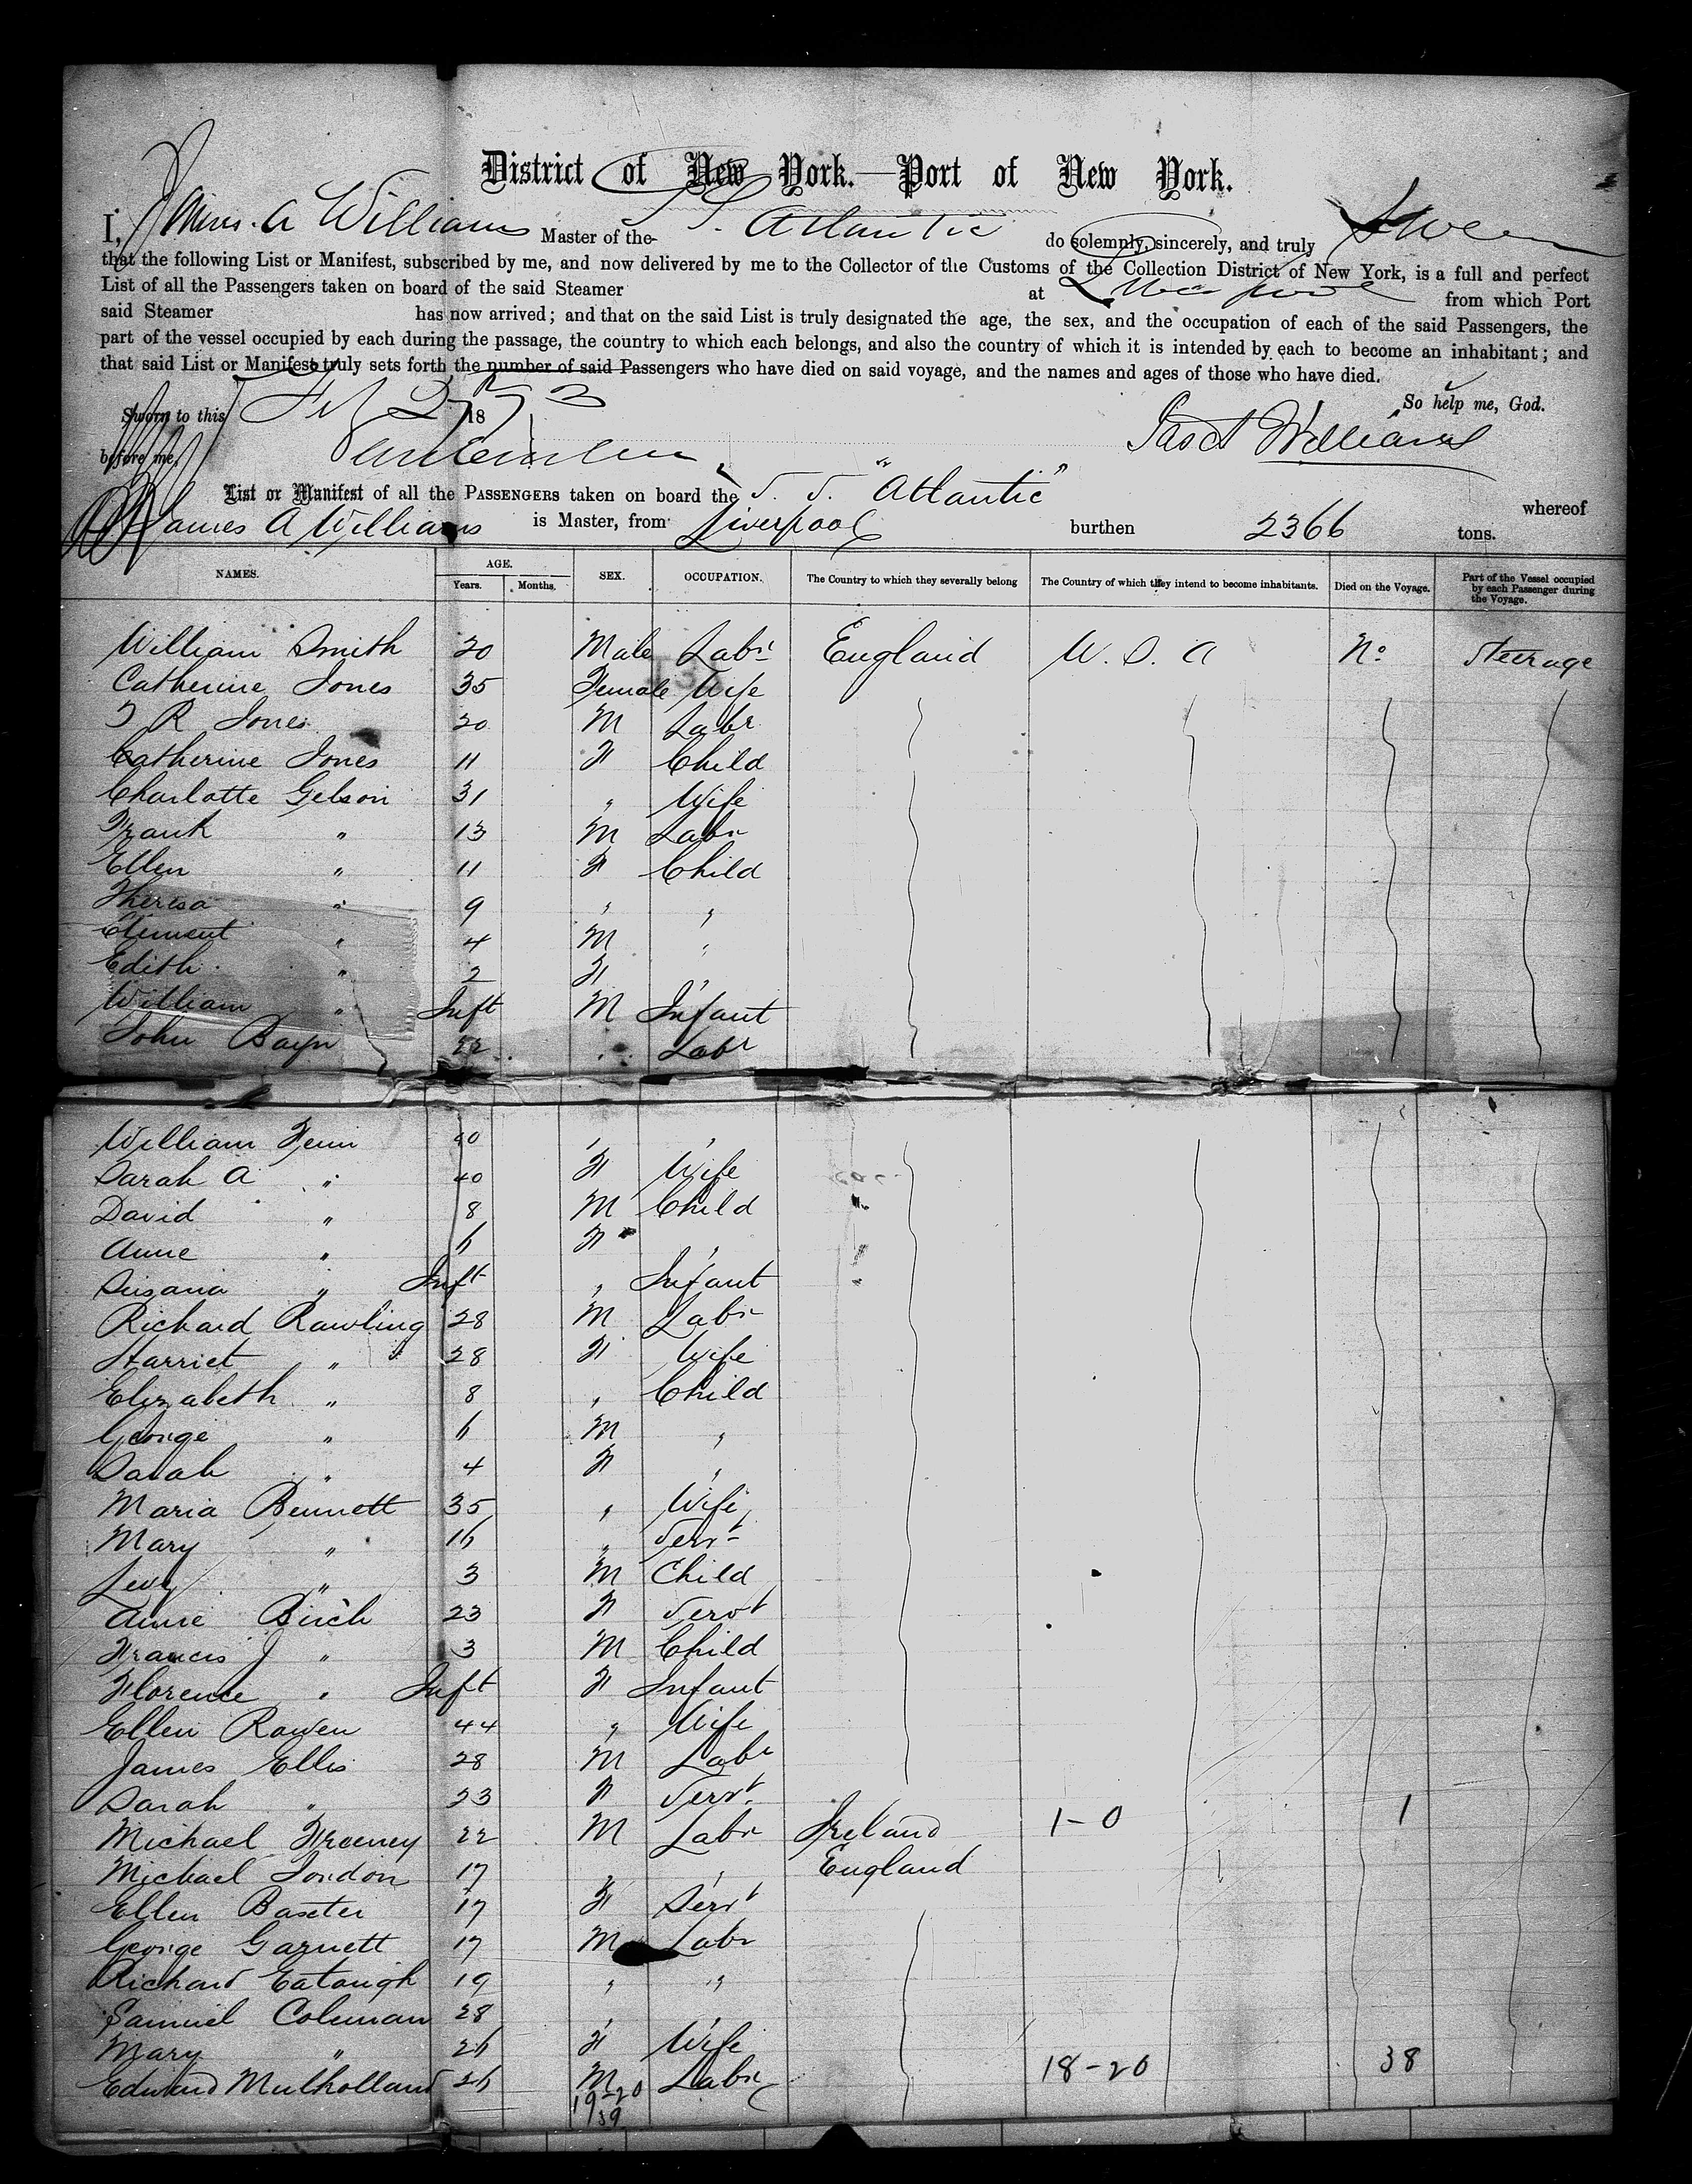 District of New York.—Port of New York.
I, James A Williams Master of the S. S. Atlantic do solemnly, sincerely, and truly Swear
that the following List or Manifest, subscribed by me, and now delivered by me to the Collector of the Customs of the Collection District of New York, is a full and perfect
List of all the Passengers taken on board of the said Steamer at Liverpool from which Port
said Steamer has now arrived; and that on the said List is truly designated the age, the sex, and the occupation of each of the said Passengers, the
part of the vessel occupied by each during the passage, the country to which each belongs, and also the country of which it is intended by each to become an inhabitant; and
that said List or Manifest truly sets forth the number of said Passengers who have died on said voyage, and the names and ages of those who have died.
So help me, God.
Sworn to this Feb 1873
before me, Jas A Williams
List or Manifest of all the Passengers taken on board the S. S. "Atlantic" whereof
James A Williams is Master, from Liverpool burthen 2366 tons.
NAMES. AGE. Years. Months. SEX. OCCUPATION. The Country to which they severally belong The Country of which they intend to become inhabitants. Died on the Voyage. Part of the Vessel occupied by each Passenger during the Voyage.
William Smith 20 Male Labr England U. S. A No Steerage
Catherine Jones 35 Female Wife
T R Jones 20 M Labr
Catherine Jones 11 F Child
Charlotte Gelson 31 " Wife
Frank " 13 M Labr
Ellen " 11 F Child
Theresa " 9 " "
Clement " 4 M "
Edith " 2 F "
William " Inft M Infant
John Bayn 22 " Labr
William Fenn 40 " "
Sarah A " 40 F Wife
David " 8 M Child
Anne " 6 F "
Susana " Inft " Infant
Richard Rawling 28 M Labr
Harriet " 28 F Wife
Elizabeth " 8 " Child
George " 6 M "
Sarah " 4 F "
Maria Bennett 35 " Wife
Mary " 16 " Servt
Levy " 3 M Child
Anne Birch 23 F Servt
Francis J " 3 M Child
Florence " Inft F Infant
Ellen Rowen 44 " Wife
James Ellis 28 M Labr
Sarah " 23 F Servt
Michael Freeney 22 M Labr Ireland 1-0 1
Michael London 17 " " England
Ellen Baxter 17 F Servt
George Garnett 17 M Labr
Richard Eatough 19 " "
Samuel Coleman 28 " "
Mary " 26 F Wife
Edward Mulholland 26 M Labr 18-20 38
19-20
39